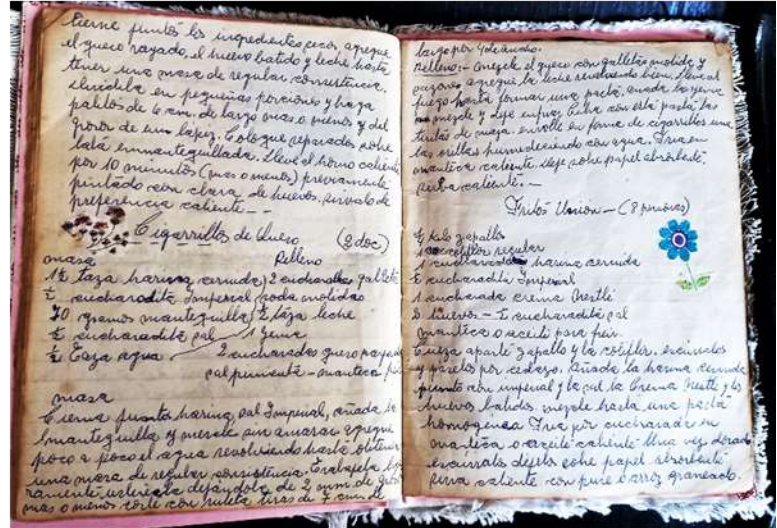 Cierne juntos los ingredientes secos, agregue
el queso rayado, el huevo batido y leche hasta
tener una masa de regular consistencia.
divídila en pequeñas porciones y haga
palitos de 6 cm. de largo mas o menos y del
grosor de un lápiz. Coloque separados sobre
lata enmantequillada. Lleve al horno caliente
por 10 minutos (mas o menos) previamente
pintado con clara de huevos. sírvalo de
preferencia caliente --
Cigarrillos de Queso (2 doc)
masa Relleno
1½ taza harina cernida 2 cucharadas galleta
½ cucharadita Imperial soda molidas
70 gramos mantequilla ½ taza leche
½ cucharadita sal 1 yema
½ Taza agua 2 cucharadas queso rayado
sal pimienta - manteca
masa
Cierna juntos harina, sal Imperial, añada la
mantequilla y mezcle sin amasar agregue
poco a poco el agua revolviendo hasta obtener
una masa de regular consistencia.
dejándola de 2 mm. de
mas o menos corte con ruleta tiras de 7 cm. de
largo por 4 de ancho.
Relleno: - mezcle el queso con galletas molida y
agregue la leche revolviendo bien. lleve al
fuego hasta formar una pasta, añada la yema
mezcle y deje enfriar. Cubra con esta pasta las
tiritas de masa, enrolle en forma de cigarrillos una
las orillas humedeciendo con agua. Fria en
manteca caliente, deje sobre papel absorbente
sirva caliente. -
Fritos Union - (8 personas)
½ kilo zapallo
1 coliflor regular
1 cucharada harina cernida
½ cucharadita Imperial
1 cucharada crema Nestlé
2 huevos - ½ cucharadita sal
manteca o aceite para freir.
Cueza aparte zapallo y la coliflor. escúrralos
y páselos por cedazo. Añada la harina cernida
junto con imperial y la sal la Crema Nestle y los
huevos batidos. mezcle hasta una pasta
homogenea Fria por cucharadas en
manteca o aceite caliente Una vez dorado
escurralos déjelos sobre papel absorbente
sirva caliente con pure o arroz graneado.